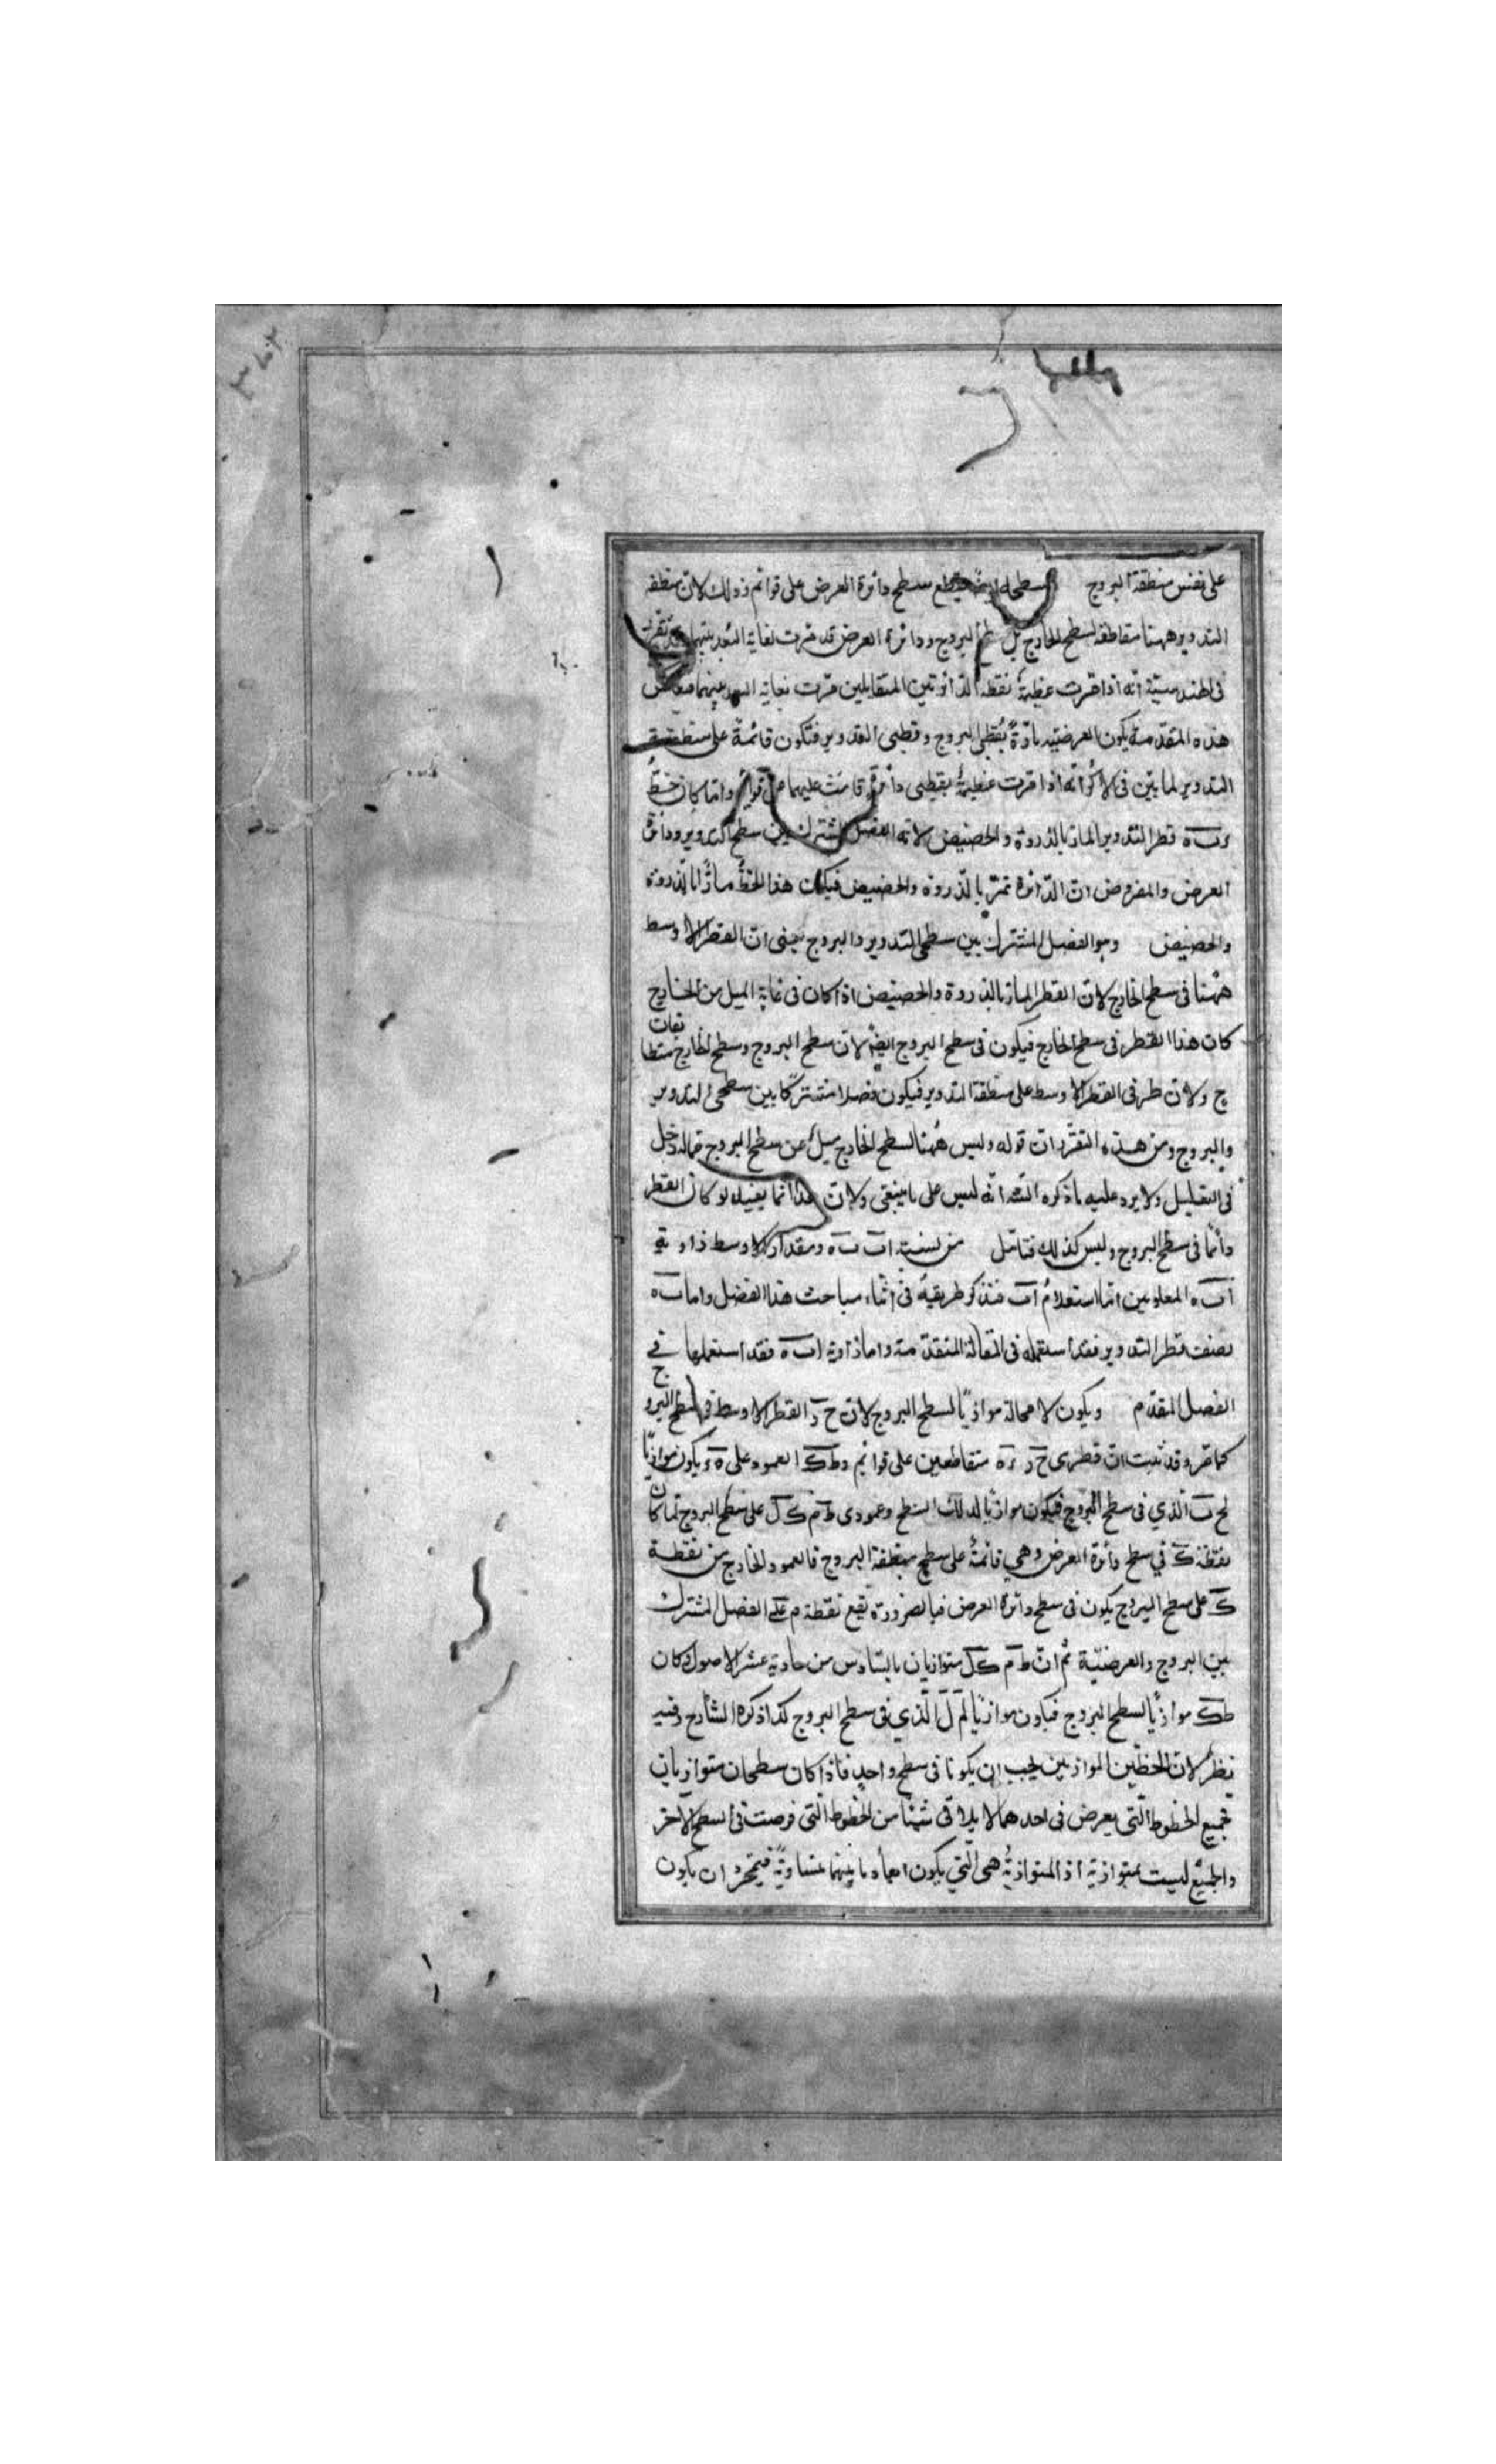 على نفس منطقة البروج سطحه ايضا يقطع سطح دائرة العرض على قوائم وذلك لان منطقة
التدوير ههنا مقاطعة لسطح الخارج بل سطح البروج ودائرة العرض قد مرت بغاية البعد بينهما وقد تقرر
في الهندسية انه اذا مرت عظيمة نقطة الدائرتين المتقابلين مرت بغاية البعد بينهما فبعكس
هذه المقدمة يكون العرضية مارة بقطبي البروج وقطبي التدوير فتكون قائمة على منطقة
التدوير لما بين في الاكر انه اذا مرت عظيمة بقطبي دائرة قامت عليها على قوائم وانما كان خط
ر ب ه قطر التدوير المار بالذروة والحضيض لانه الفصل المشترك بين سطح التدوير ودائرة
العرض والمفروض ان الدائرة تمر بالذروة والحضيض فيكون هذا الخط مارا بالذروة
والحضيض وهو الفصل المشترك بين سطحي التدوير والبروج يعني ان القطر الاوسط
ههنا في سطح الخارج لان القطر المار بالذروة والحضيض اذا كان في غاية الميل من الخارج
كان هذا القطر في سطح الخارج فيكون في سطح البروج ايضا لان سطح البروج وسطح الخارج متطابقات
ح ولان طرفي القطر الاوسط على منطقة التدوير فيكون فصلا مشتركا بين سطحي التدوير
والبروج ومن هذه التقريرات قوله وليس ههنا لسطح الخارج ميل عن سطح البروج فماله دخل
في التعليل ولا يرد عليه ما ذكره الشه انه ليس على ما ينبغي ولان هذا انما يفيد لو كان القطر
دائما في سطح البروج وليس كذلك فتامل من نسبة ا ب ب ه ومقدار الاوسط زاوية
ا ب ه المعلومين اما استعلام ا ب فنذكر طريقه في اثناء مباحث هذا الفصل واما ب ه
نصف قطر التدوير فقد استعمله في المقالة المتقدمة واما زاوية ا ب ه فقد استعملها في
الفصل المقدم ويكون لا محالة موازيا لسطح البروج لان ح د القطر الاوسط في سطح البروج
كما مر وقد ثبت ان قطري ح د ر ه متقاطعين على قوائم و ط ك العمود على ه ر يكون موازيا
لح ب الذي في سطح البروج فيكون موازيا لذلك السطح وعمودي ط م ك ل على سطح البروج لما كان
نقطة ك في سطح دائرة العرض وهي قائمة على سطح منطقة البروج فالعمود الخارج من نقطة
ك على سطح البروج يكون في سطح دائرة العرض فبالضرورة تقع نقطة م على الفصل المشترك
بين البروج والعرضية ثم ان ط م ك ل متوازيان بالسادس من حادية عشر الاصول وكان
ط ك موازيا لسطح البروج فيكون موازيا لم ل الذي في سطح البروج كذا ذكره الشارح وفيه
نظر لان الخطين الموازيين يجب ان يكونا في سطح واحد فاذا كان سطحان متوازيان
فجميع الخطوط التي يعرض في احدهما لا يلاقي شيئا من الخطوط التي فرضت في السطح الاخر
والجميع ليست بمتوازية اذ المتوازية هي التي يكون ابعاد ما بينهما متساوية فبمجرد ان يكون